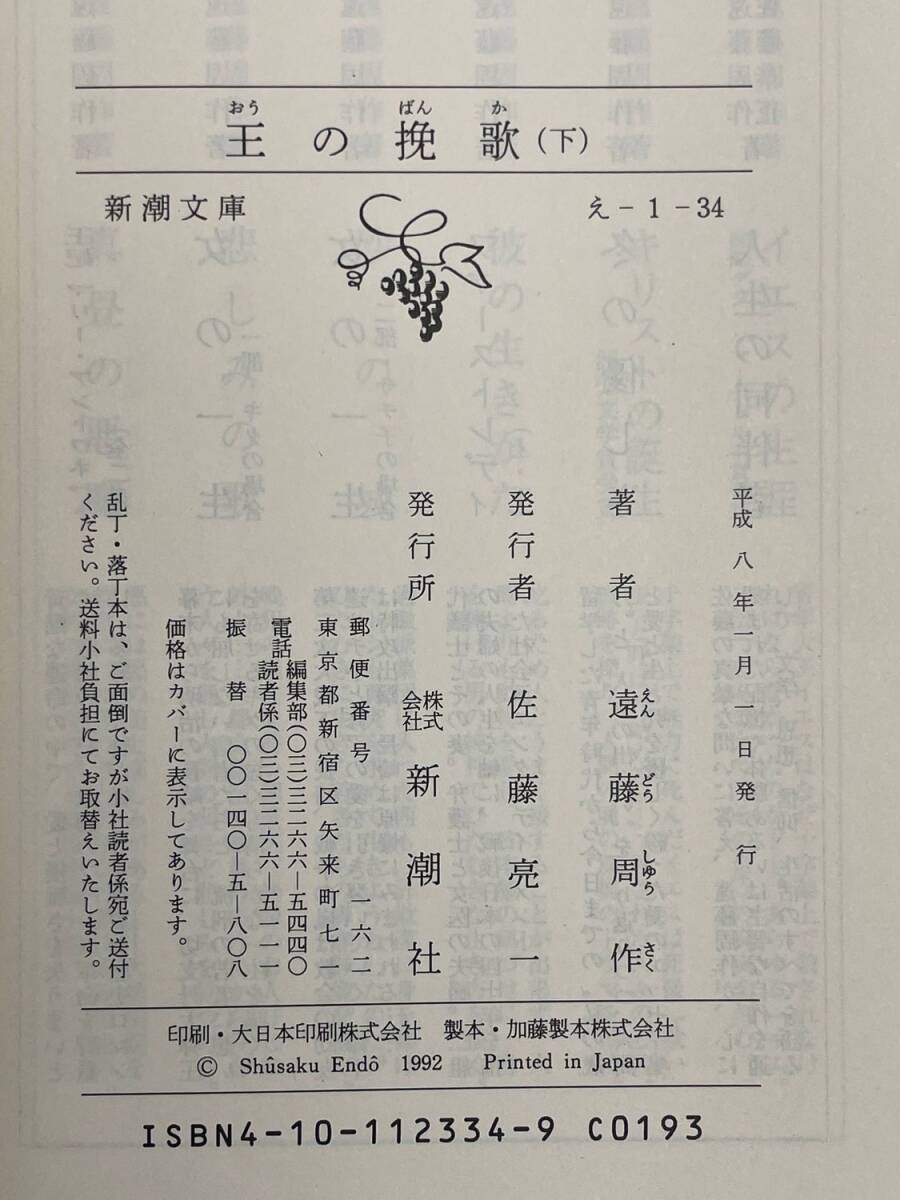 おう ばん か
王の挽歌(下)
新潮文庫 え-1-34
平成八年一月一日発行
著者 遠藤周作
えん どう しゅう さく
発行者 佐藤亮一
発行所 株式会社 新潮社
郵便番号 一六二
東京都新宿区矢来町七一
電話 編集部(〇三)三二六六―五四四〇
読者係(〇三)三二六六―五一一一
振替 〇〇一四〇―五―八〇八
価格はカバーに表示してあります。
乱丁・落丁本は、ご面倒ですが小社読者係宛ご送付
ください。送料小社負担にてお取替えいたします。
印刷・大日本印刷株式会社 製本・加藤製本株式会社
© Shûsaku Endô 1992 Printed in Japan
ISBN4-10-112334-9 C0193